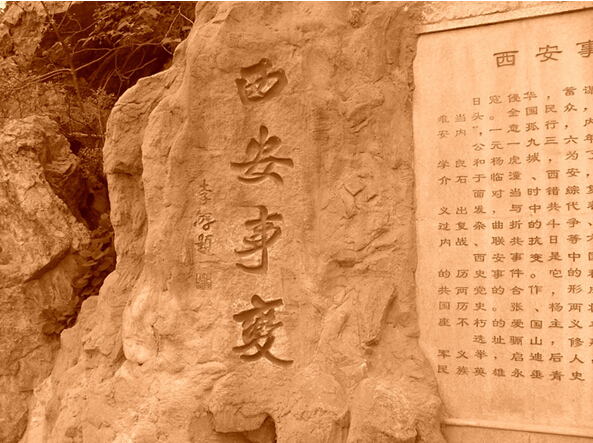 西安事变
李
题
西安事
蓄众，六为安综代争等中的形两义修人史
，民行三，西错共斗日是它，杨主，后青
华国孤九城、时中的抗变。作、国山迪垂
侵金意一虎潼当与折共事件合张爱骊启永
寇。一元杨临对，曲联安事的。的址，雄
日头”，公和于面发杂、西史党史朽选举英
当内良石出复战历两历不义族
难安学介义过内的共国座军民